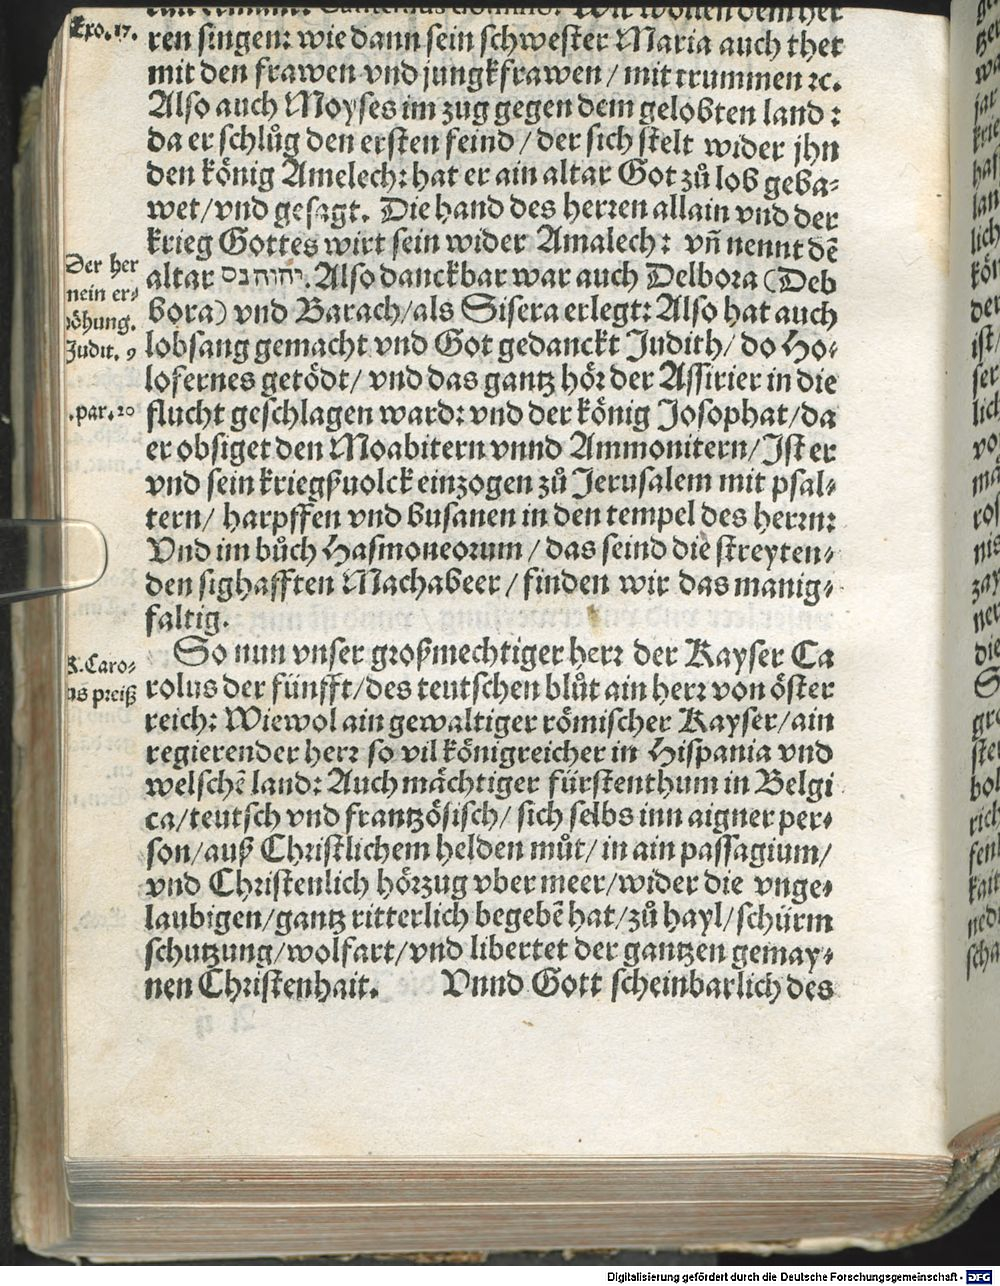 Wir wöllen dem her
Exo. 17.
ren singen: wie dann sein schwester Maria auch thet
mit den frawen vnd jungkfrawen / mit trummen ꝛc.
Also auch Moyses im zug gegen dem gelobten land :
da er schlůg den ersten feind / der sich stelt wider jhn
den könig Amelech: hat er ain altar Got zů lob geba⸗
wet/vnd gesagt. Die hand des herren allain vnd der
krieg Gottes wirt sein wider Amalech : vñ nennt dē
Der her
nein er⸗
höhung.
altar יהוה נס. Also danckbar war auch Delbora (Deb
bora) vnd Barach/als Sisera erlegt: Also hat auch
Judit. 9
lobsang gemacht vnd Got gedanckt Judith/ do Ho⸗
lofernes getödt/ vnd das gantz hör der Assirier in die
.par. 20
flucht geschlagen ward: vnd der könig Josophat/da
er obsiget den Moabitern vnnd Ammonitern/Ist er
vnd sein kriegßuolck einzogen zů Jerusalem mit psal⸗
tern/ harpffen vnd busanen in den tempel des herrn:
Vnd im bůch Hasmoneorum / das seind die streyten⸗
den sighafften Machabeer / finden wir das manig⸗
faltig.
K. Caro⸗
us preiß
So nun vnser großmechtiger herr der Kayser Ca
rolus der fünfft/des teutschen blůt ain herr von öster
reich: Wiewol ain gewaltiger römischer Kayser/ain
regierender herr so vil königreicher in Hispania vnd
welschē land: Auch mächtiger fürstenthum in Belgi
ca/teutsch vnd frantzösisch/ sich selbs inn aigner per⸗
son/auß Christlichem helden můt/ in ain passagium/
vnd Christenlich hörzug vber meer/wider die vnge⸗
laubigen/gantz ritterlich begebē hat/zů hayl/schürm
schutzung/wolfart/vnd libertet der gantzen gemay⸗
nen Christenhait. Vnnd Gott scheinbarlich des
Digitalisierung gefördert durch die Deutsche Forschungsgemeinschaft - DFG